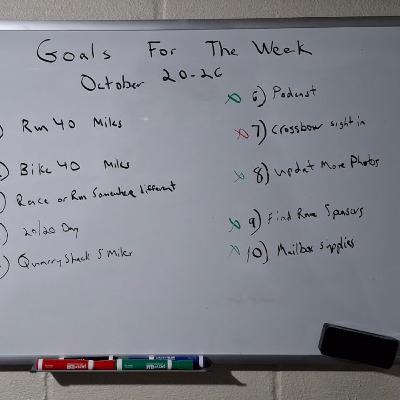 Goals For The Week
October 20-26
) Run 40 Miles
) Bike 40 Miles
) Race or Run Somewhere different
) 20/20 Day
) Quarry Shack 5 Miler
6) Podcast
7) Crossbow sight in
8) Updat More Photos
9) Find Race Sponsors
10) Mailbox supplies